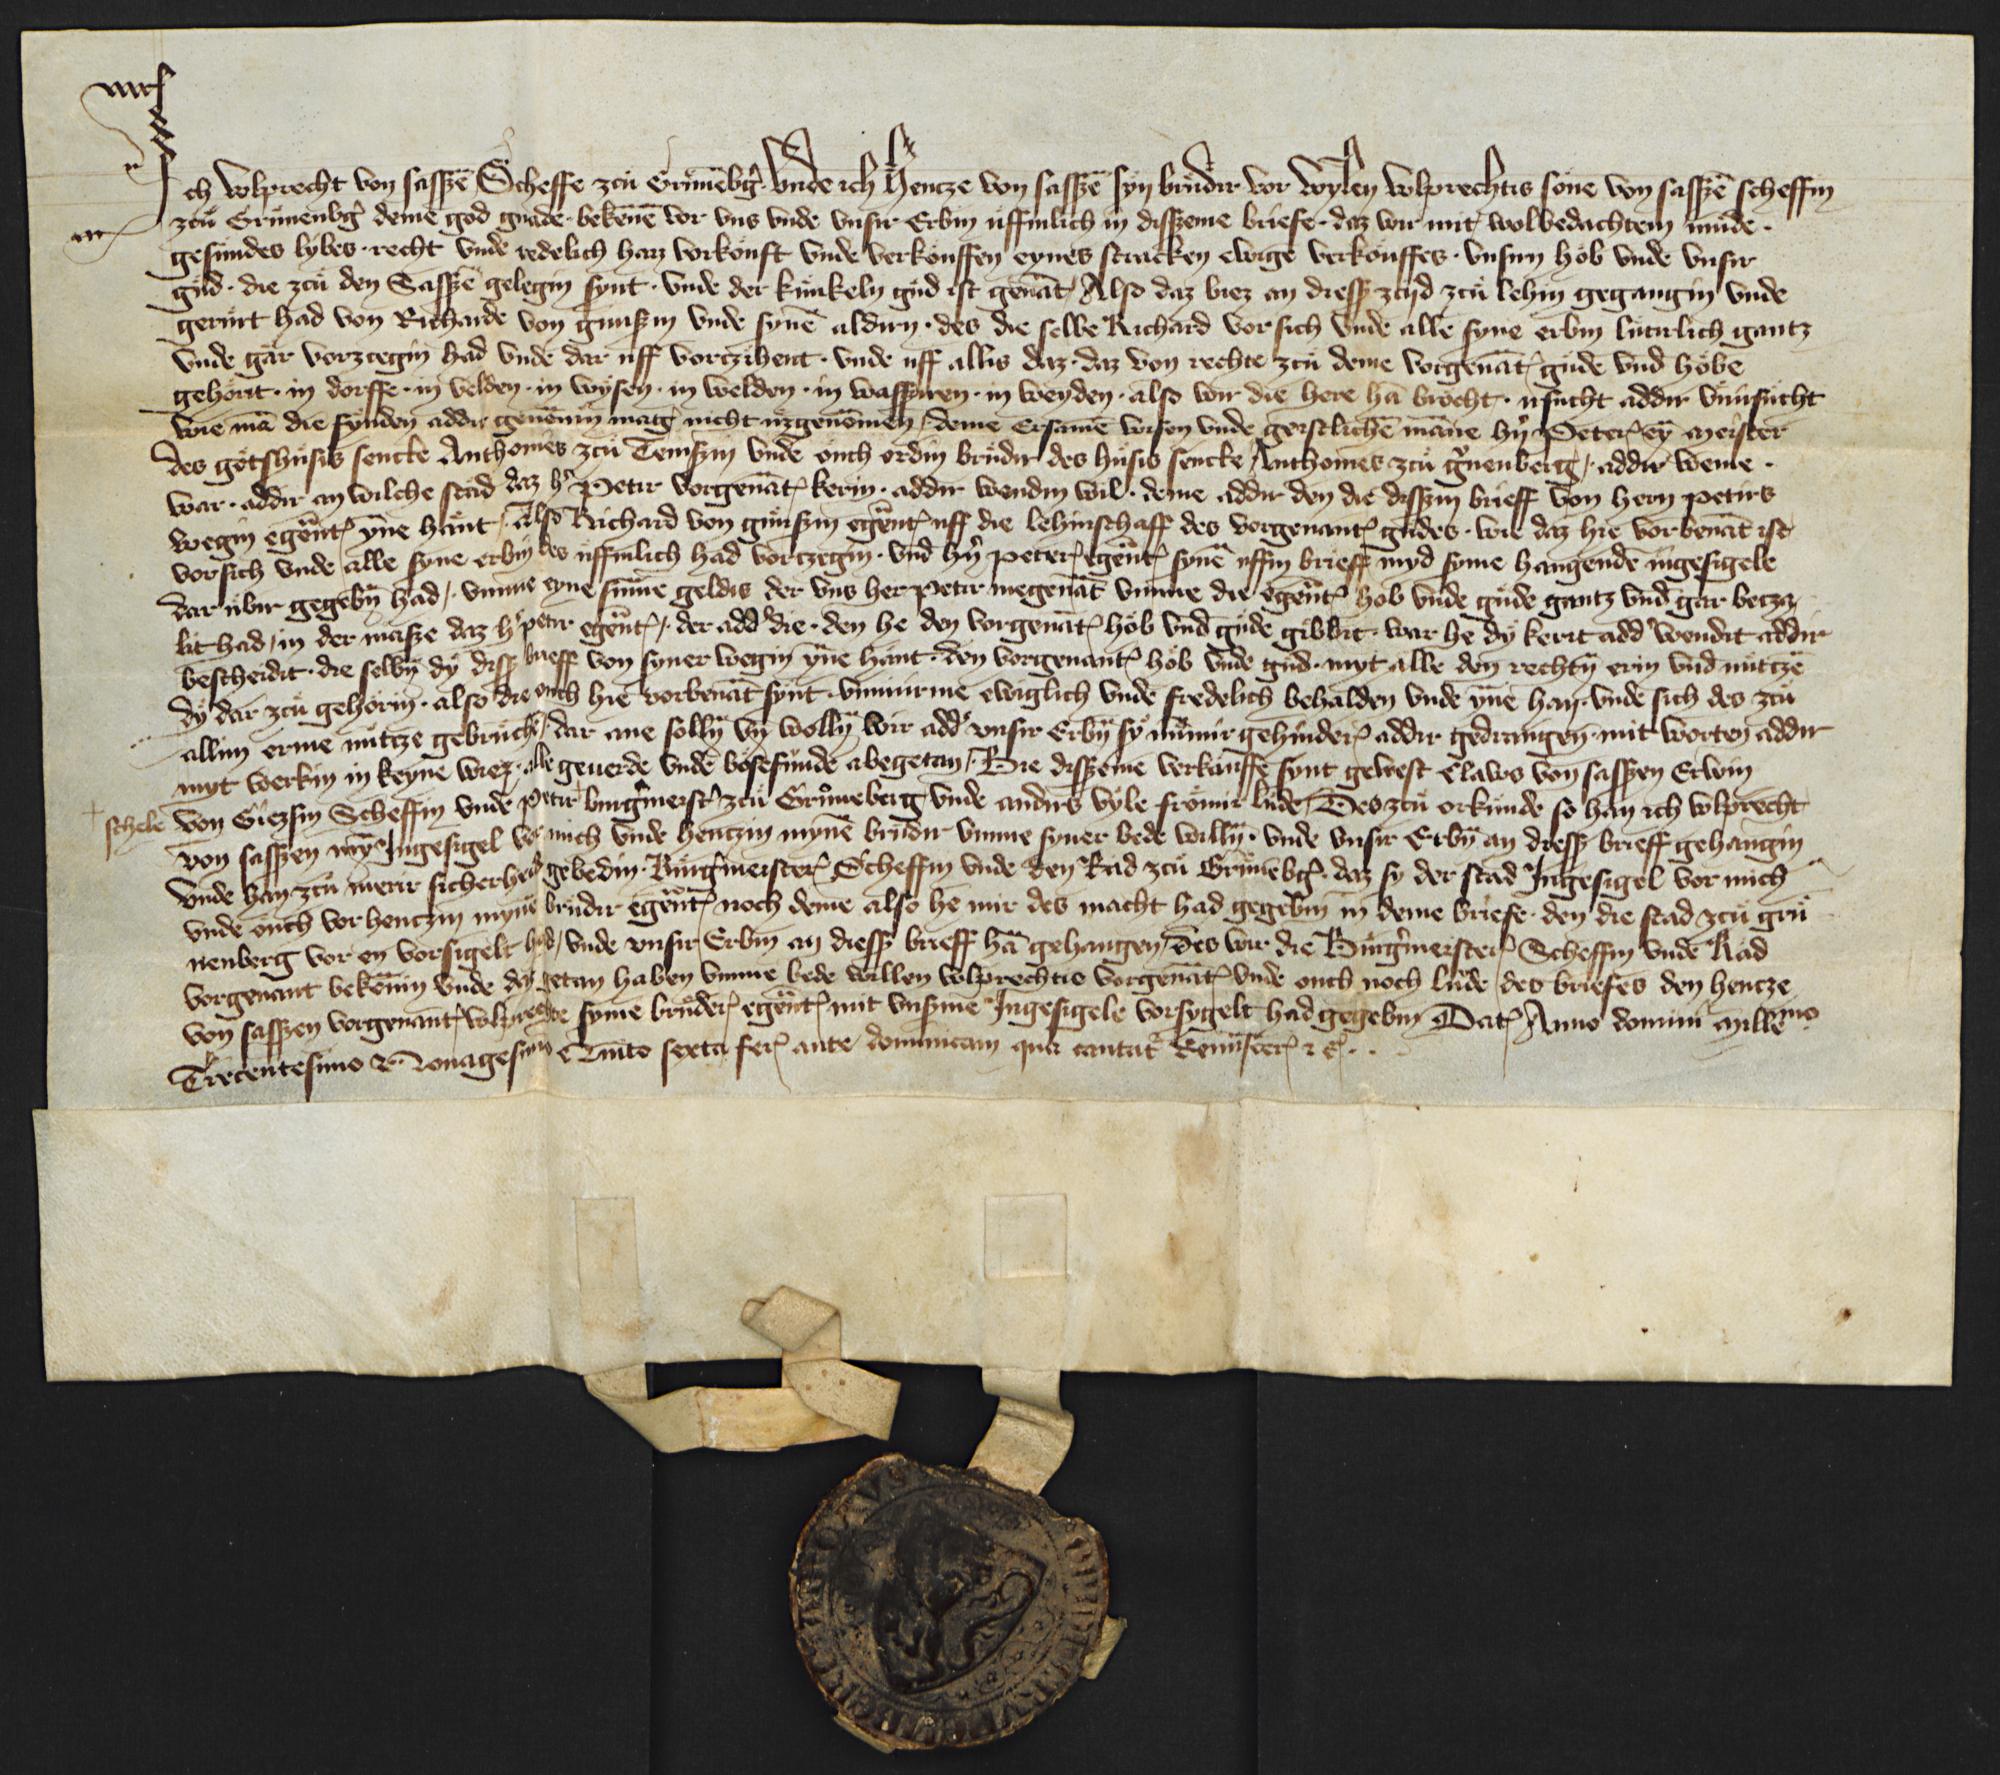 Ich Volprecht von sasszē Scheffe zcu Grunēbg̃ vnde ich Hencze von sasszē syn brudir vor wylen volprechtis sone von sasszē scheffin
zcu Grunenbg̃ deme god gnade · bekēne vor vns vnde vnsir Erbin uffinlich in disszeme briefe · daz wir mit wolbedachtem mude ·
gesundes lybes · recht vnde redelich han vorkouft vnde verkouffen eynes stracken ewigē verkouffes · vnsirn hob vnde vnsir
gud · die zcu den Sasszē gelegin synt · vnde der kunkeln gud ist genāt Also daz biez an diessz zcijd zcu lehin gegangin vnde
gerurt had von Richarde von vnde synē aldirn · des die selbe Richard vor sich vnde alle syne erbin luttirlich gantz
vnde gar vorzcegin had vnde dar uff vortzihent · vnde uff allis daz · daz von rechte zcu deme vorgenāt gude vnd hobe
gehorit · in dorffe · in velden · in wysen · in welden · in wassziren · in weyden · also wir die here hā brocht · irsucht addir vnirsucht
wie mā die fynden addir genomin mag nicht uzgenomen / deme Ersamē wisen vnde geistlichē māne hn̄ Peter eȳ meister
des gotshusis sencte Anthonies zcu vnde ouch ordin brudir des husis sencte Anthonies zcu gnenberg / addir weme ·
war · addir an wilche stad daz h' Petir vorgenāt kerin · addir wendin wil · deme addir den die disszin brieff von hern petirs
wegin egēnt yne hant / also Richard von egēnt uff die lehinschaff des vorgenant gudes · wie daz hie vorbenāt ist
vor sich vnde alle syne erbin des uffinlich had vortzegin · vnd hn̄ peter egēnt synē uffin brieff myd syme hangendē ingesigele
dar ubir gegebin had / vmme eyne sumē geldis der vns her petir vmme die egēnt hob vnde gude gantz vnd gar becza
lit had / in der masze daz h' petir egēnt / der add' die · den he den vorgenāt hob vnd gude gibbit · war he dy kerit add' wendit addir
bescheidit · die selbin dy dissz brieff von syner wegin yne hant · den vorgenant hob vnde gud · myt alle den rechtin erin vnd nutczē
dy dar zcu gehorin · also die ouch hie vorbenāt synt · vmmirme ewiglich vnde fredelich behalden vnde yne han · vnde sich des zcu
allin erme nutcze gebruchē / dar ane sollin vn̄ wollin wir add' vnsir Erbin sy nūmir gehinder addir gedrangen · mit worten addir
myt werkin in keyne wiez · alle geuerde vnde bosefunde abegetan / Bie disszeme verkauffe synt gewest Clawes von sasszen Erwin
schele von Giezsin Scheffin vnde petir burgmeist' zcu Gruneberg vnde andirs vyle fromir lude / Des zcu orkunde so han ich volprecht
von sasszen myn Ingesigel vor mich vnde henczin mynē brudir vmme syner bede willin · vnde vnsir Erbin an diessz brieff gehangin
vnde han zcu merir sicherheid gebedin · Burgmeister Scheffin vnde den Rad zcu Grunēbg̃ · daz sy der stad Ingesigel vor mich
vnde ouch vor henczin mynē brudir egēnt noch deme also he mir des macht had gegebin in deme briefe · den die stad zcu gru
nenberg vor en vorsigelt had / vnde vnsir Erbin an diessz brieff hā gehangen / des wir die Burgmeister Scheffin vnde Rad
vorgenant bekēnin vnde daz getan haben vmme bede willen volprechtis vorgenāt vnde ouch noch lude des briefes den hencze
von sasszen vorgenant volprechte syme bruder egēnt mit vnsirme Ingesigele vorsygelt had gegebin Dat Anno domini Millēmo
Trecentesimo & Nonagesimo Quito sexta fer ante dominicam qua cantat' Reminscer ·